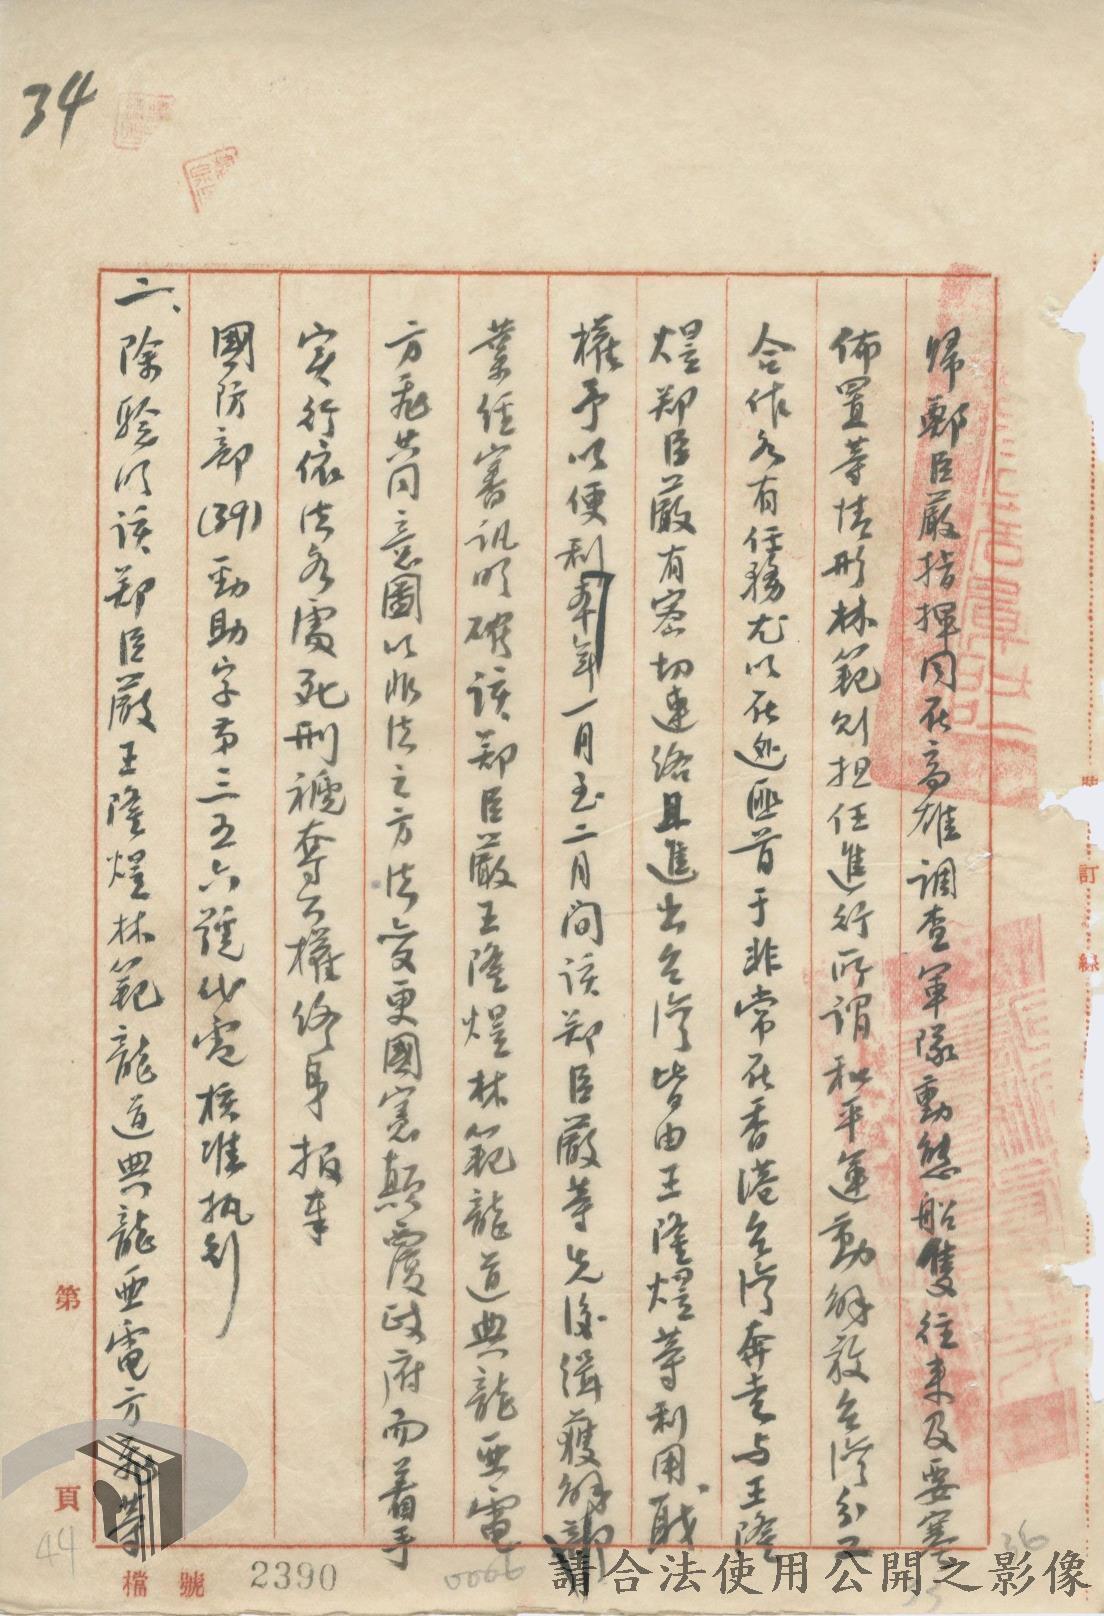 34
歸鄭臣嚴指揮同在高雄調查軍隊動態船隻往來及要塞
佈置等情形林範則担任進行所謂和平運動解放台灣分工
合作各有任務尤以在逃匪首于非常在香港台灣奔走与王隆
煜郑臣嚴有密切連絡且進出台灣皆由王隆煜等利用職
權予以便利本年一月至二月間該郑臣嚴等先後緝獲解部
業經審訊明確該郑臣嚴王隆煜林範龍道典龍亜電
方飛共同意圖以非法之方法变更國憲顛覆政府而着手
实行依法各處死刑褫奪公權終身报奉
國防部(39)勁助字第三五六號代電核准执刑
二、除驗明該郑臣嚴王隆煜林範龍道典龍亜電方飛等
裝
訂
線
第
頁
44
檔號
2390
0066
36
請合法使用公開之影像